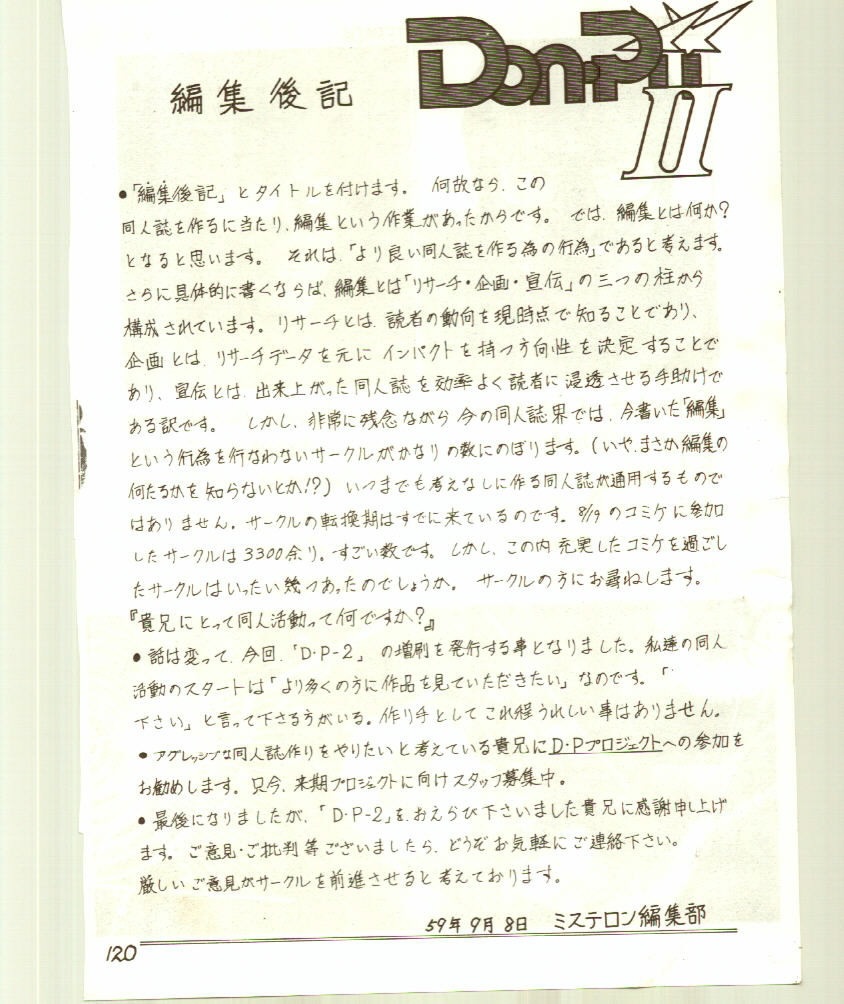 Don-Pii
II
編集後記
●「編集後記」とタイトルを付けます。 何故なら、この
同人誌を作るに当たり、編集という作業があったからです。 では、編集とは何か?
となると思います。 それは、「より良い同人誌を作る為の行為」であると考えます。
さらに具体的に書くならば、編集とは「リサーチ・企画・宣伝」の三つの柱から
構成されています。リサーチとは、読者の動向を現時点で知ることであり、
企画とは、リサーチデータを元にインパクトを持つ方向性を決定することで
あり、宣伝とは、出来上がった同人誌を効率よく読者に浸透させる手助けで
ある訳です。 しかし、非常に残念ながら今の同人誌界では、今書いた「編集」
という行為を行なわないサークルがかなりの数にのぼります。(いや、まさか編集の
何たるかを知らないとか!?)いつまでも考えなしに作る同人誌が通用するもので
はありません。サークルの転換期はすでに来ているのです。8/19のコミケに参加
したサークルは3300余り。すごい数です。しかし、この内充実したコミケを過ごし
たサークルはいったい幾つあったのでしょうか。 サークルの方にお尋ねします。
『貴兄にとって同人活動って何ですか?』
●話は変って、今回、「D・P-2」の増刷を発行する事となりました。私達の同人
活動のスタートは「より多くの方に作品を見ていただきたい」なのです。「
下さい」と言って下さる方がいる。作り手としてこれ程うれしい事はありません。
●アグレッシブな同人誌作りをやりたいと考えている貴兄にD・Pプロジェクトへの参加を
お勧めします。只今、来期プロジェクトに向けスタッフ募集中。
●最後になりましたが、「D・P-2」を、おえらび下さいました貴兄に感謝申し上げ
ます。ご意見・ご批判等ございましたら、どうぞお気軽にご連絡下さい。
厳しいご意見がサークルを前進させると考えております。
59年9月8日 ミステロン編集部
120